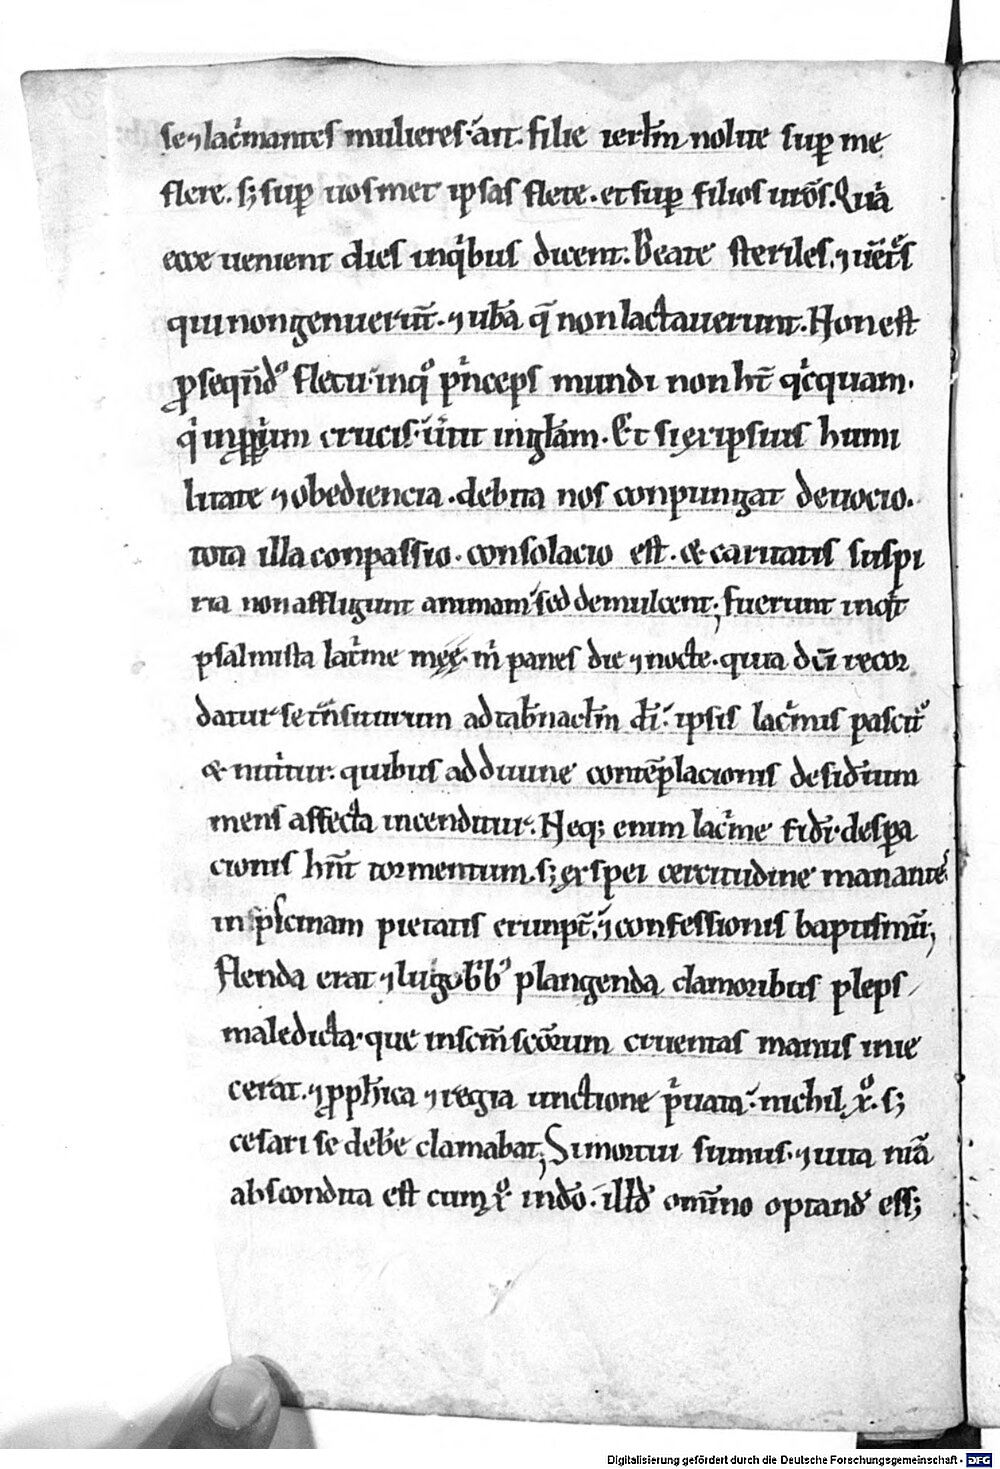 se ⁊ lac̓mantes mulieres. ait. filie ierl̅m nolite sup̲ me
flere. s; sup̲ uosmet ipsas flete. et sup̲ filios ur̅os. Qm̅
ecce uenient dies in qi̓bus dicent. Beate steriles. ⁊ uent̅s
qui non genuer̅t. ⁊ ub̅a q̅ non lactauerunt. Non est
ꝓseqn̅dꝰ fletu. inqͦ pi̓nceps mundi non ht̅ qc̓quam.
ingl̅am. Et si ex ipsius humi
litate ⁊ obediencia. debita nos conpungat deuocio.
tota illa conpassio. consolacio est. & caritatis suspi
ria non affligunt animam sed demulcent; fuerunt inqt̅
psalmista lacri̓me mee. m̓ panes die ⁊ nocte. quia du̅ recor
datur se tn̅siturum ad tab̅nacl̅m di̅. ipsis lac̓mis pascit᷒
& nut̓tur. quibus ad diuine conte̅placionis desid̓ium
mens affecta incenditur. Neq; enim lac̓me fidi̓. despa̲
cionis hn̅t tormentum. s; ex spei certitudine manante̅s
in piscinam pietatis erunpt̅. ⁊ confessionis baptismu̅;
flenda erat ⁊ lugub̓bꝰ plangenda clamoribus pleps
maledicta. que in scm̅ scōrum cruentas manus inie
cerat. ⁊ ꝓph̅ica ⁊ regia unctione pi̓uata. nichil xͦ. s;
cesari se deb̅e clamabat; Si mortui sumus. ⁊ uita nr̅a
abscondita est cum xͦ in dō. ill̅d om̅ino optand̓ ess;
Digitalisierung gefördert durch die Deutsche Forschungsgemeinschaft - DFG